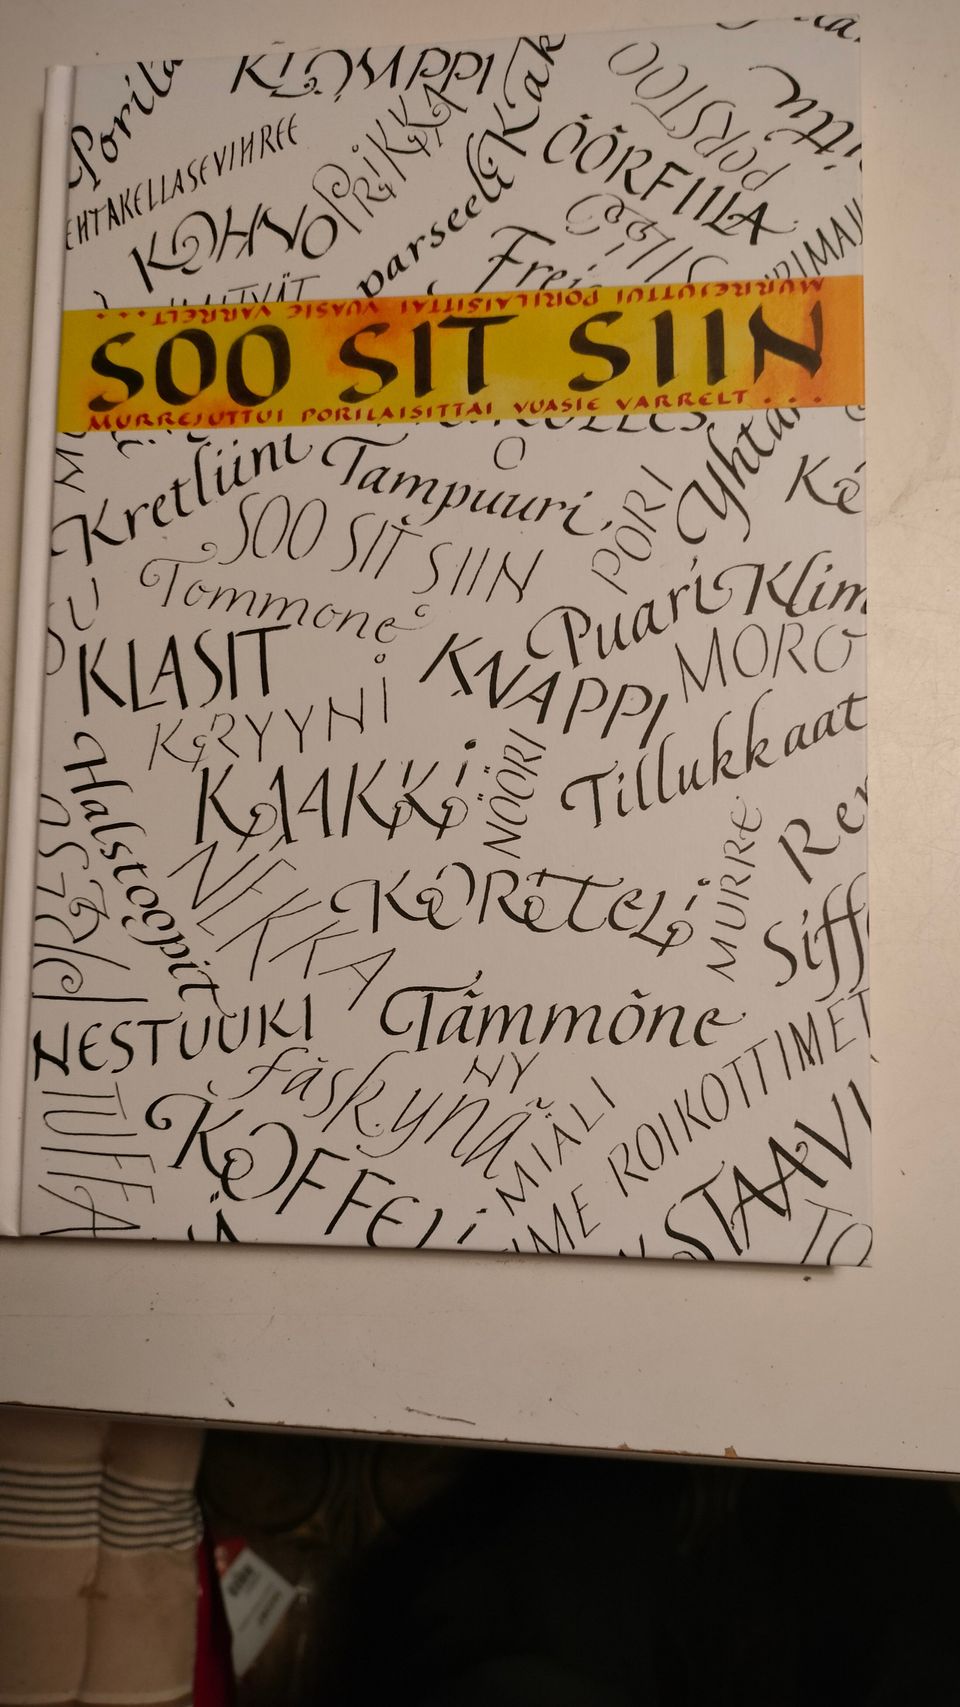 Porila
KIOMPPI
Kak
PORSTOO
EHTAKELLASEVIHREE
PRIKKA
ÖÖRFIILA
KOHNO
parseeli
Frei
MURREJUTTUI PORILAISITTAI VUASIE VARRELT...
SOO SIT SIIN
MURREJUTTUI PORILAISITTAI VUASIE VARRELT...
Kretliini
Tampuuri
Yhtä
SOO SIT SIIN
PORI
Tommone
Puari
Klim
KLASIT
KNAPPI
MORO
KRYYNI
Halstoopit
KAAKKI
NÖÖRI
Tillukkaat
NEKKA
KORTELI
MURRE
Re
Siff
NESTUUKI
Tämmöne
fäskynä
NY
MIÄLI
ROIKOTTIMET
TUIFA
KOFFELI
IME
STAAVI
TO